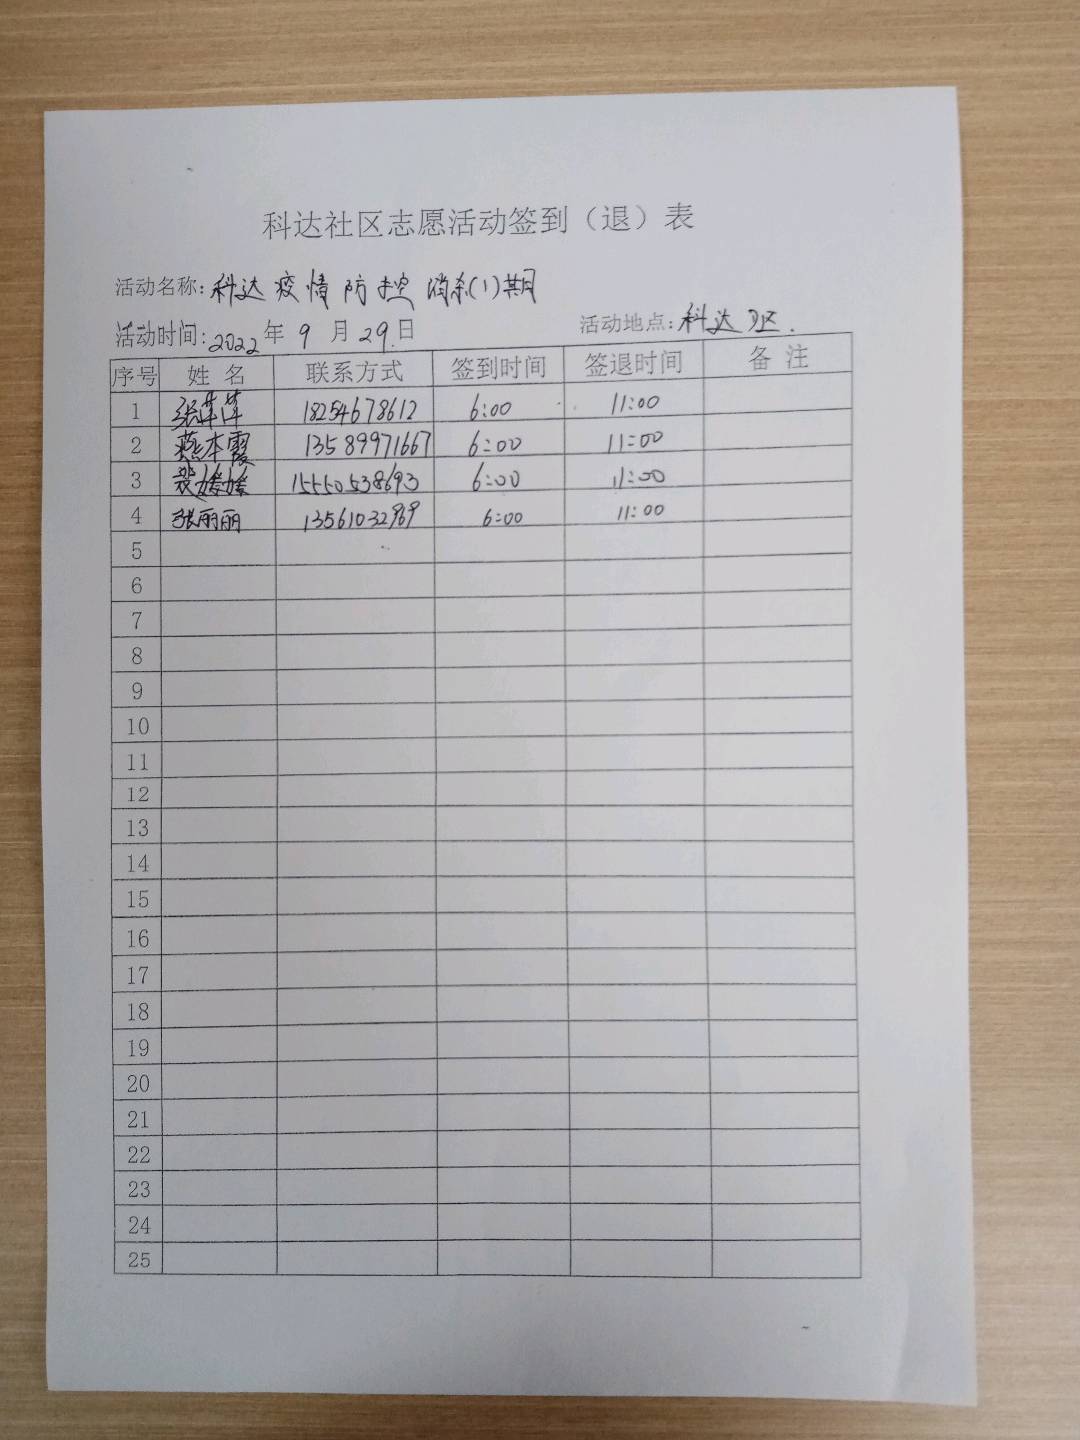 科达社区志愿活动签到（退）表
活动名称：科达疫情防控消杀(1)期
活动时间：2022年9月29日 活动地点：科达区.
序号 姓名 联系方式 签到时间 签退时间 备注
1 张萍萍 18254678612 6:00 11:00
2 燕本霞 13589971667 6:00 11:00
3 裴媛媛 15550538693 6:00 11:00
4 张丽丽 13561032969 6:00 11:00
5
6
7
8
9
10
11
12
13
14
15
16
17
18
19
20
21
22
23
24
25